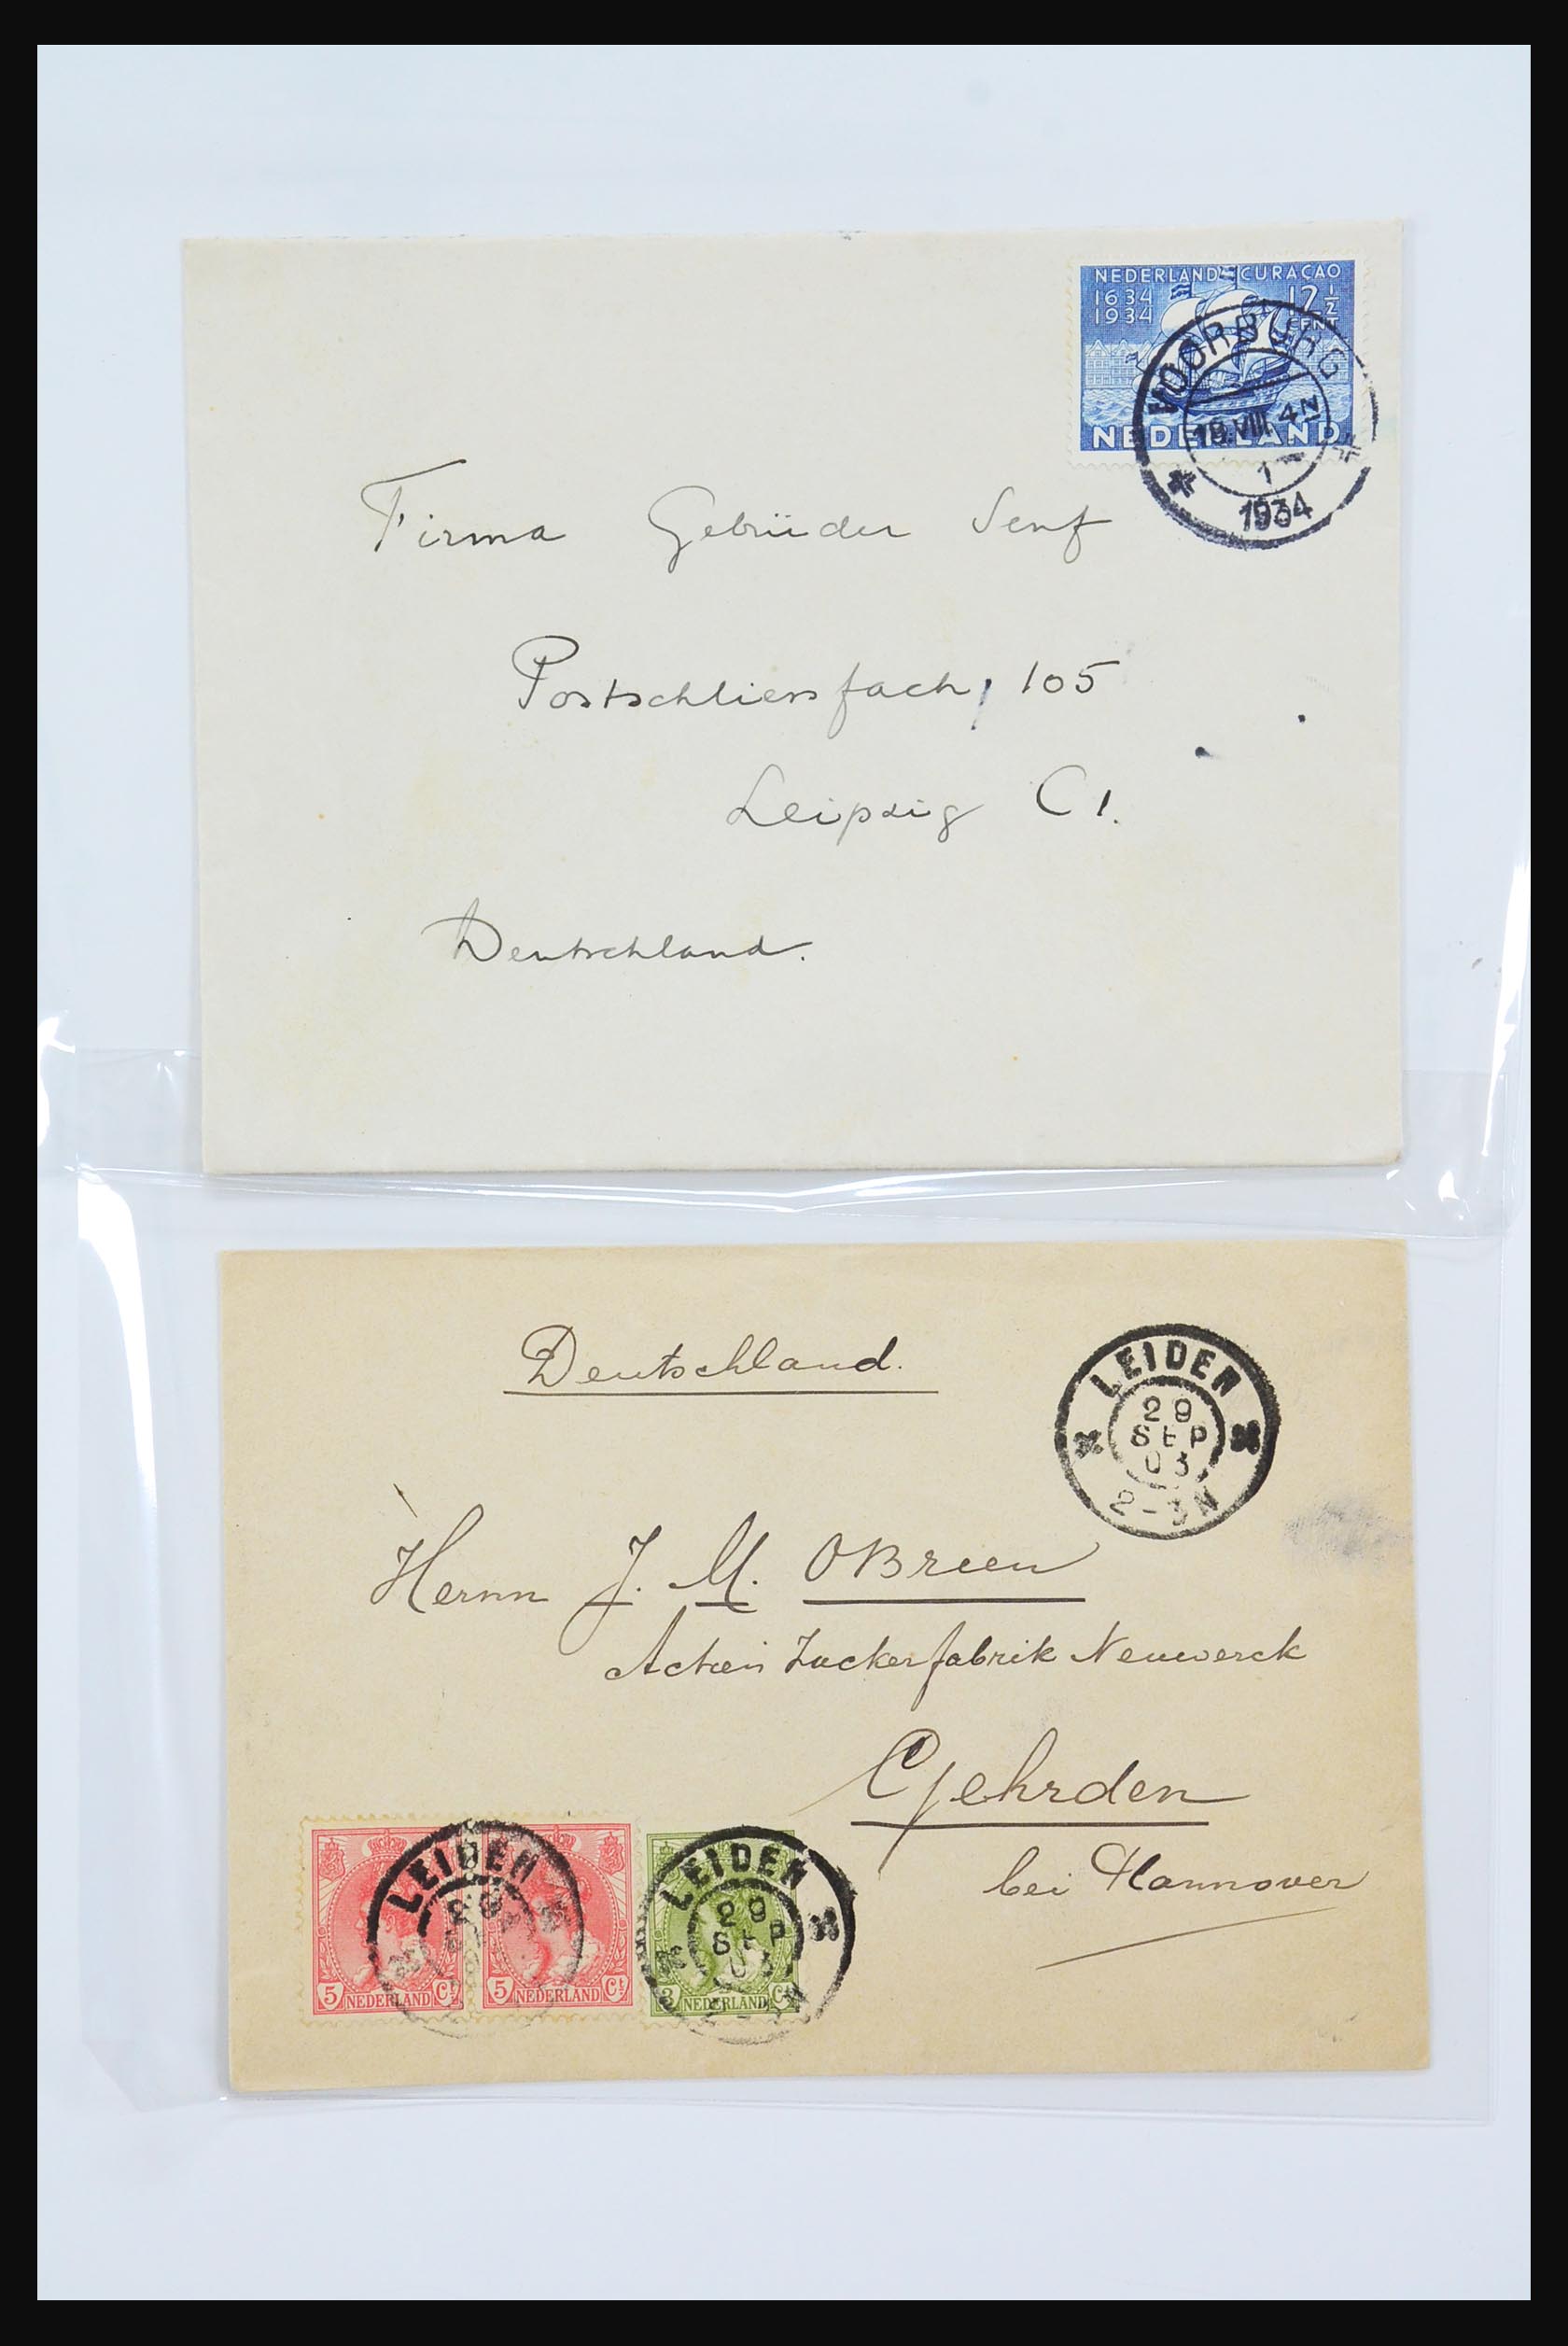 NEDERLAND CURAÇAO
1634
1934
12½
CENT
NEDERLAND
VOORBURG
18.VIII. 4N
1
1934
Firma Gebrüder Senf
Postschliessfach, 105
Leipzig C1.
Deutschland.
Deutschland.
LEIDEN
29
SEP
03
2-3N
Herrn J. M. OBreen
Actien Zuckerfabrik Neuwerck
Gehrden
bei Hannover
LEIDEN
5 NEDERLAND Ct
5 NEDERLAND Ct
LEIDEN
29
SEP
03
3 NEDERLAND Ct